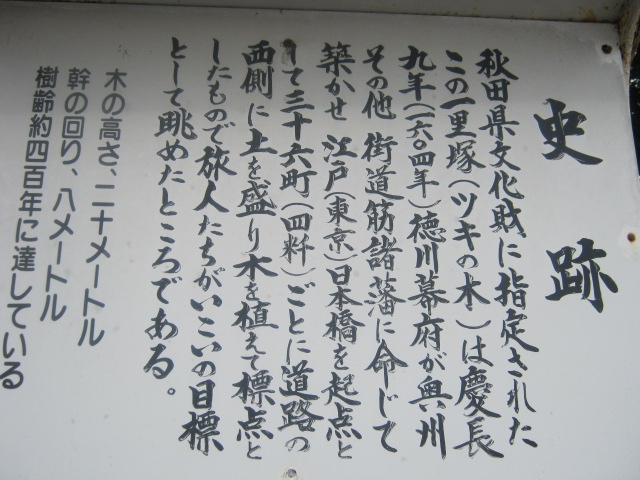 史跡
秋田県文化財に指定された
この一里塚(ツキの木)は慶長
九年(一六〇四年)徳川幕府が奥州
その他街道筋諸藩に命じて
築かせ江戸(東京)日本橋を起点と
して三十六町(四粁)ごとに道路の
西側に土を盛り木を植えて標点と
したもので旅人たちがいこいの目標
として眺めたところである。
木の高さ、二十メートル
幹の回り、八メートル
樹齢約四百年に達している